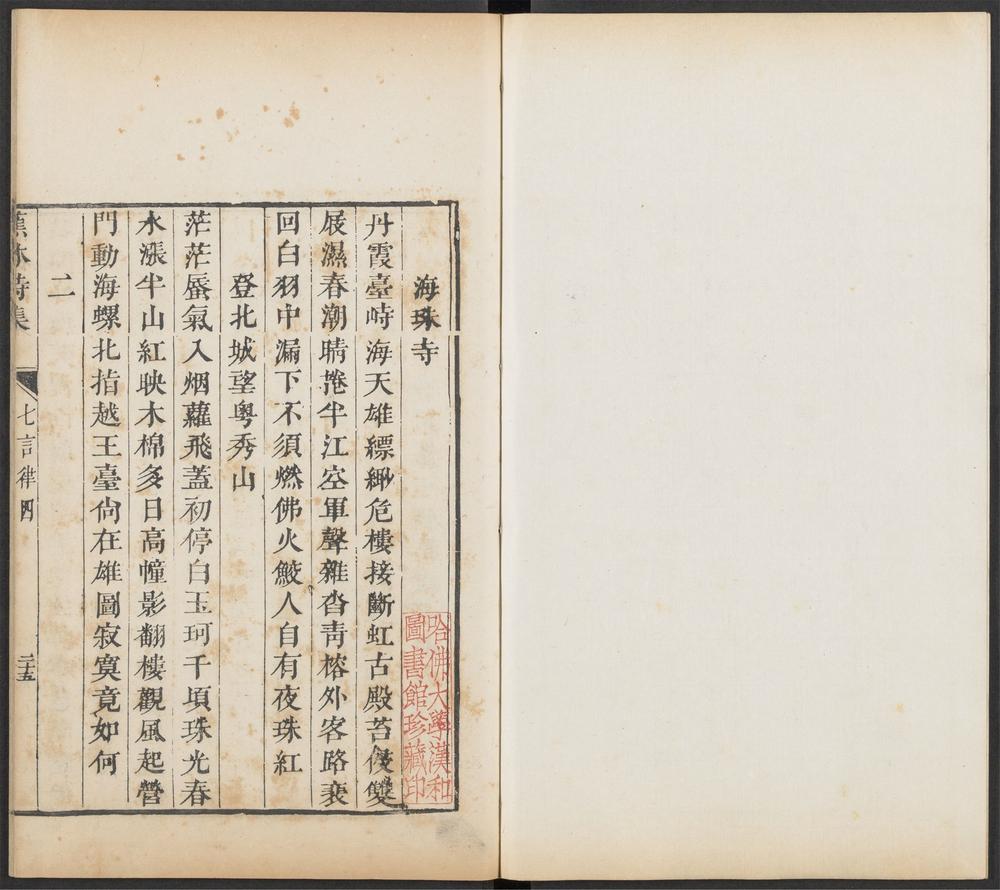 海珠寺
丹霞臺峙海天雄縹緲危樓接斷虹古殿苔侵雙
屐濕春潮晴捲半江空軍聲雜沓靑榕外客路裴
回白羽中漏下不須燃佛火鮫人自有夜珠紅
登北城望粵秀山
茫茫蜃氣入烟蘿飛蓋初停白玉珂千頃珠光春
水漲半山紅映木棉多日高幢影翻樓觀風起營
門動海螺北指越王臺尙在雄圖寂寞竟如何
二
蕉林詩集
七言律四
二十五
哈佛大學漢和
圖書館珍藏印